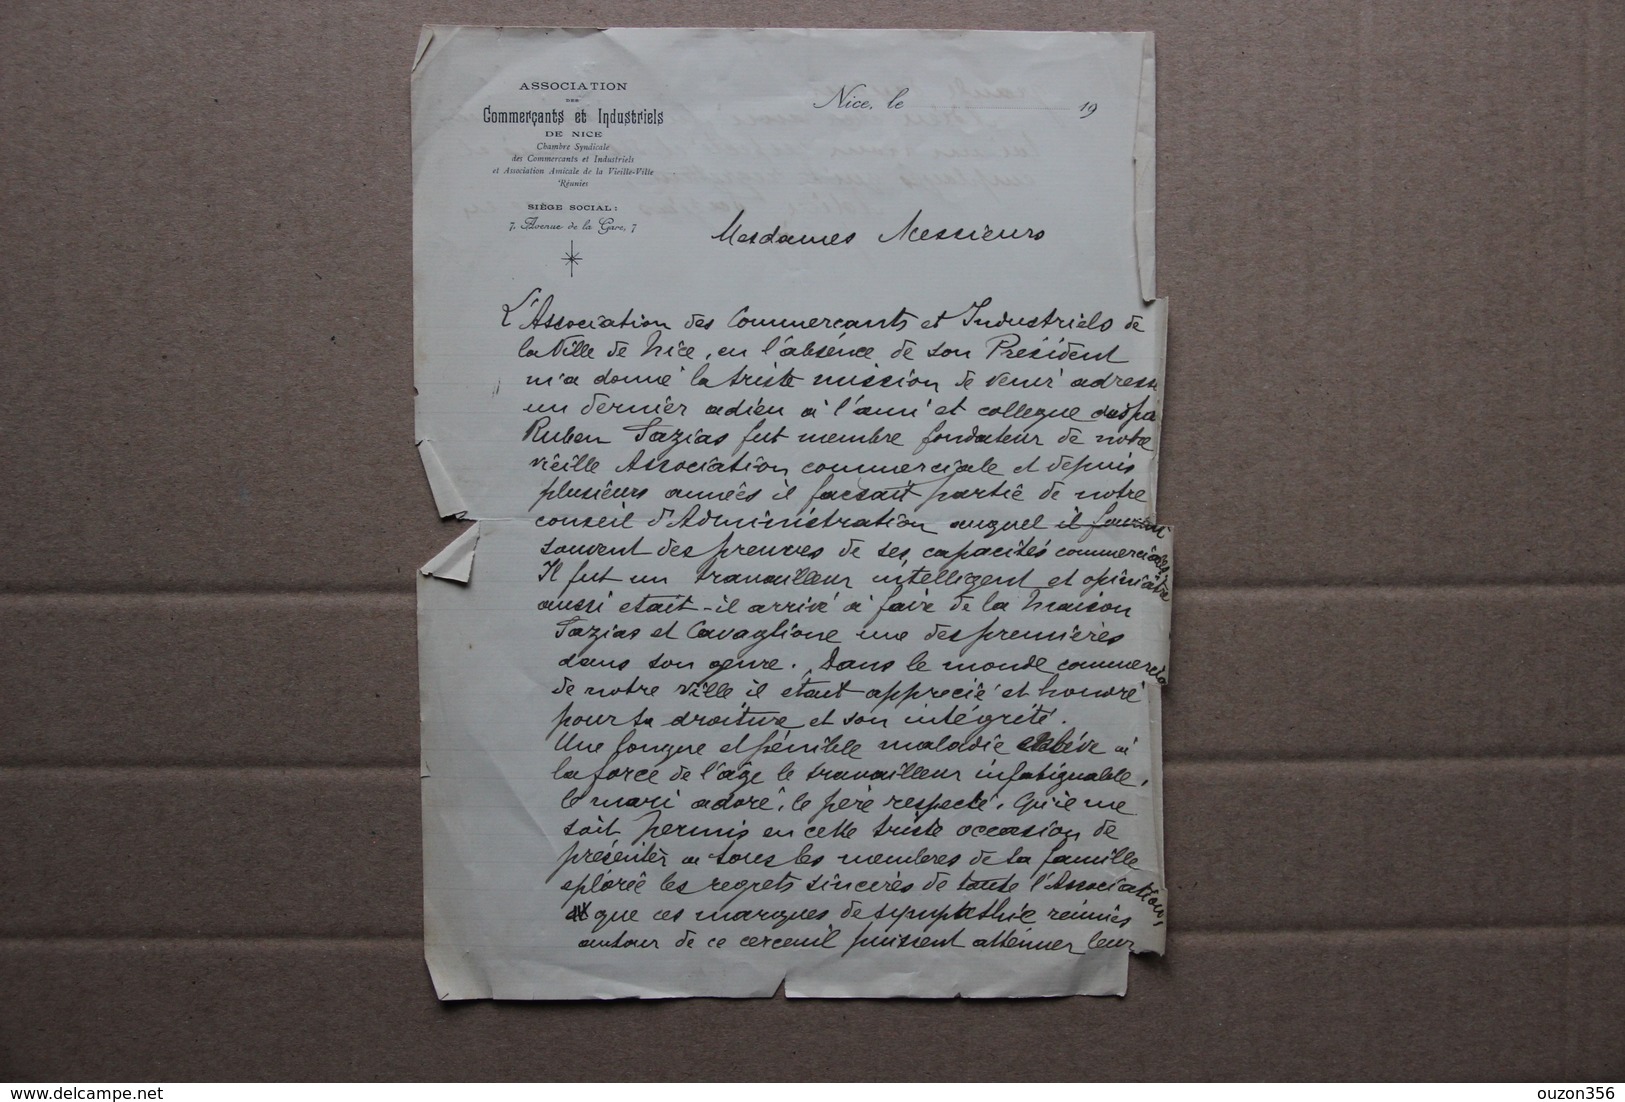 ASSOCIATION
DES
Commerçants et Industriels
DE NICE
Chambre Syndicale
des Commercants et Industriels
et Association Amicale de la Vieille-Ville
Réunies
SIÈGE SOCIAL:
7, Avenue de la Gare, 7
Nice, le 19
Mesdames Messieurs
L'Association des Commercants et Industriels de
la Ville de Nice, en l'absence de son Président
m'a donné la triste mission de venir adresse
un dernier adieu à l'ami et collegue
Ruben Sazias fut membre fondateur de notre
vieille Association commerciale et depuis
plusieurs années il faisait partie de notre
conseil d'Administration auquel il fourni
souvent des preuves de ses capacités commerciales,
Il fut un travailleur intelligent et opiniâtre
aussi etait-il arrivé à faire de la Maison
Sazias et Cavaglione une des premières
dans son genre. Dans le monde commercia
de notre ville il était apprecié et honoré
pour sa droiture et son intégrité.
Une longue et pénible maladie enlève à
la force de l'âge le travailleur infatiguable,
le mari adoré, le père respecté. Qu'il me
soit permis en cette triste occasion de
présenter à tous les membres de la famille
eplorée les regrets sincères de toute l'Association,
que ces marques de sympathie réunies
autour de ce cerceuil puissent atténuer leur
delcampe.net
ouzon356